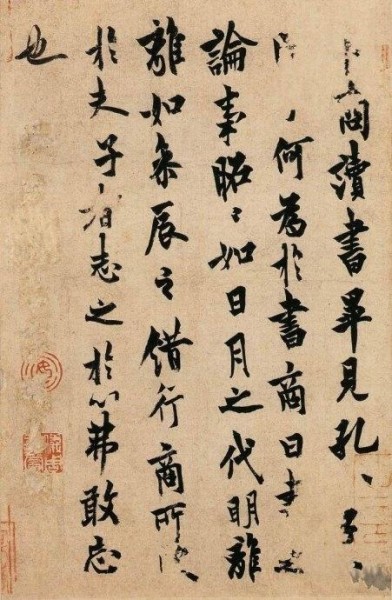 卜商讀書畢見孔、子、
何為於書商曰書
論事昭、如日月之代明離
離如參辰之錯行商所
於夫子者志之於心弗敢忘
也